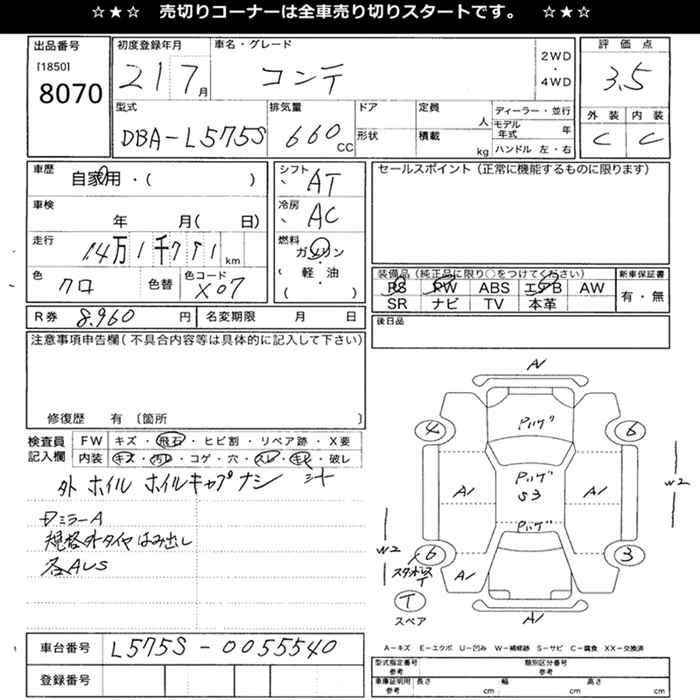 ☆★☆ 売切りコーナーは全車売り切りスタートです。 ☆★☆
出品番号 [1850] 8070
初度登録年月 21 7月
車名・グレード コンテ
2WD・4WD
評価点 3.5
外装 C 内装 C
型式 DBA-L575S
排気量 660cc
ドア 形状
定員 人 積載 kg
ディーラー・並行
モデル年式 年
ハンドル 左・右
車歴 自家用・( )
シフト AT
セールスポイント(正常に機能するものに限ります)
車検 年 月( 日)
冷房 AC
走行 14万1千771km
燃料 ガソリン・(軽・油)・( )
色 クロ 色替
色コード X07
装備品(純正品に限り○をつけてください) 新車保証書
PS PW ABS エアB AW 有・無
SR ナビ TV 本革
R券 8,960円 名変期限 月 日
後日品
注意事項申告欄(不具合内容等は具体的に記入して下さい)
修復歴 有〔箇所 〕
検査員記入欄
FW キズ・飛石・ヒビ割・リペア跡・X要
内装 キズ・汚レ・コゲ・穴・スレ・キレ・破レ
外 ホイル ホイルキャップナシ
Dミラー A
規格外タイヤはみ出し
各AUS
A1
4 Pハゲ 6
A1 Pハゲ S3 A1 W2
Pハゲ
W2 6 3
スタッドレスT A1
T スペア A1
A-キズ E-エクボ U-凹み W-補修跡 S-サビ C-腐食 XX-交換済
車台番号 L575S-0055540
登録番号
型式指定番号 参考 類別区分番号 参考
車庫証明用 参考 長さ cm 幅 cm 高さ cm